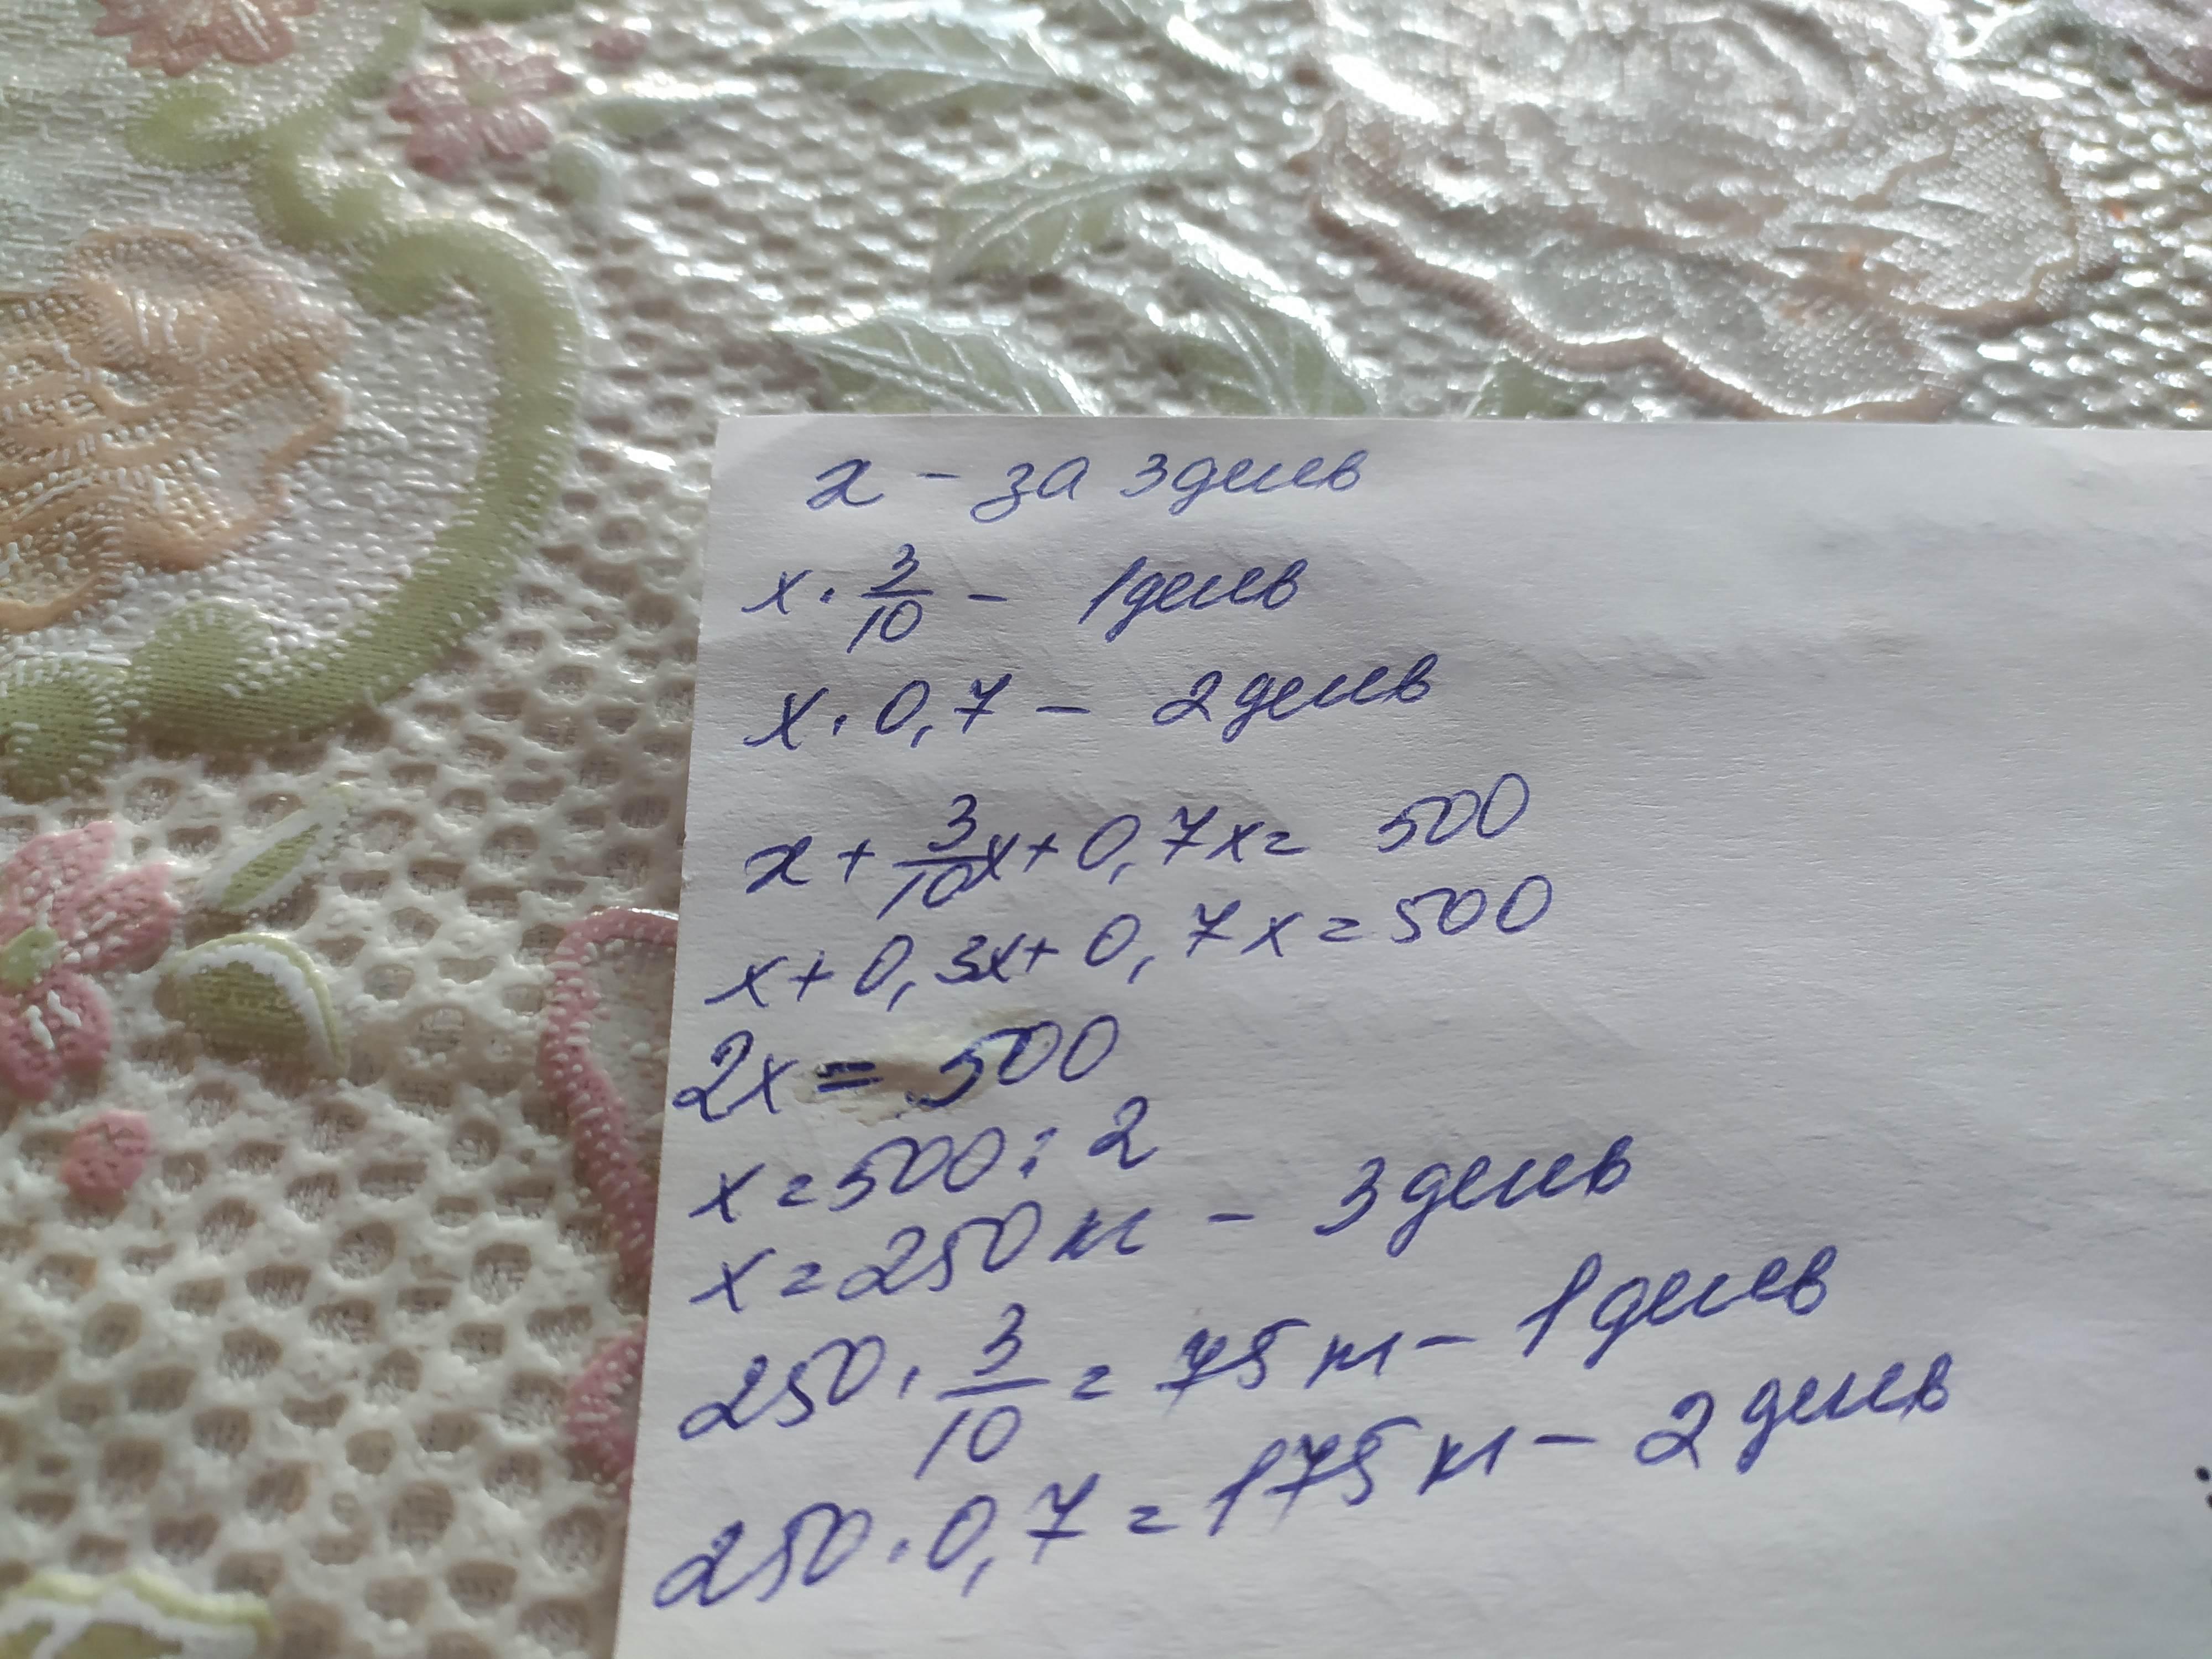 x - за 3 день
x · 3/10 - 1 день
x · 0,7 - 2 день
x + 3/10x + 0,7x = 500
x + 0,3x + 0,7x = 500
2x = 500
x = 500 : 2
x = 250 кг - 3 день
250 · 3/10 = 75 кг - 1 день
250 · 0,7 = 175 кг - 2 день